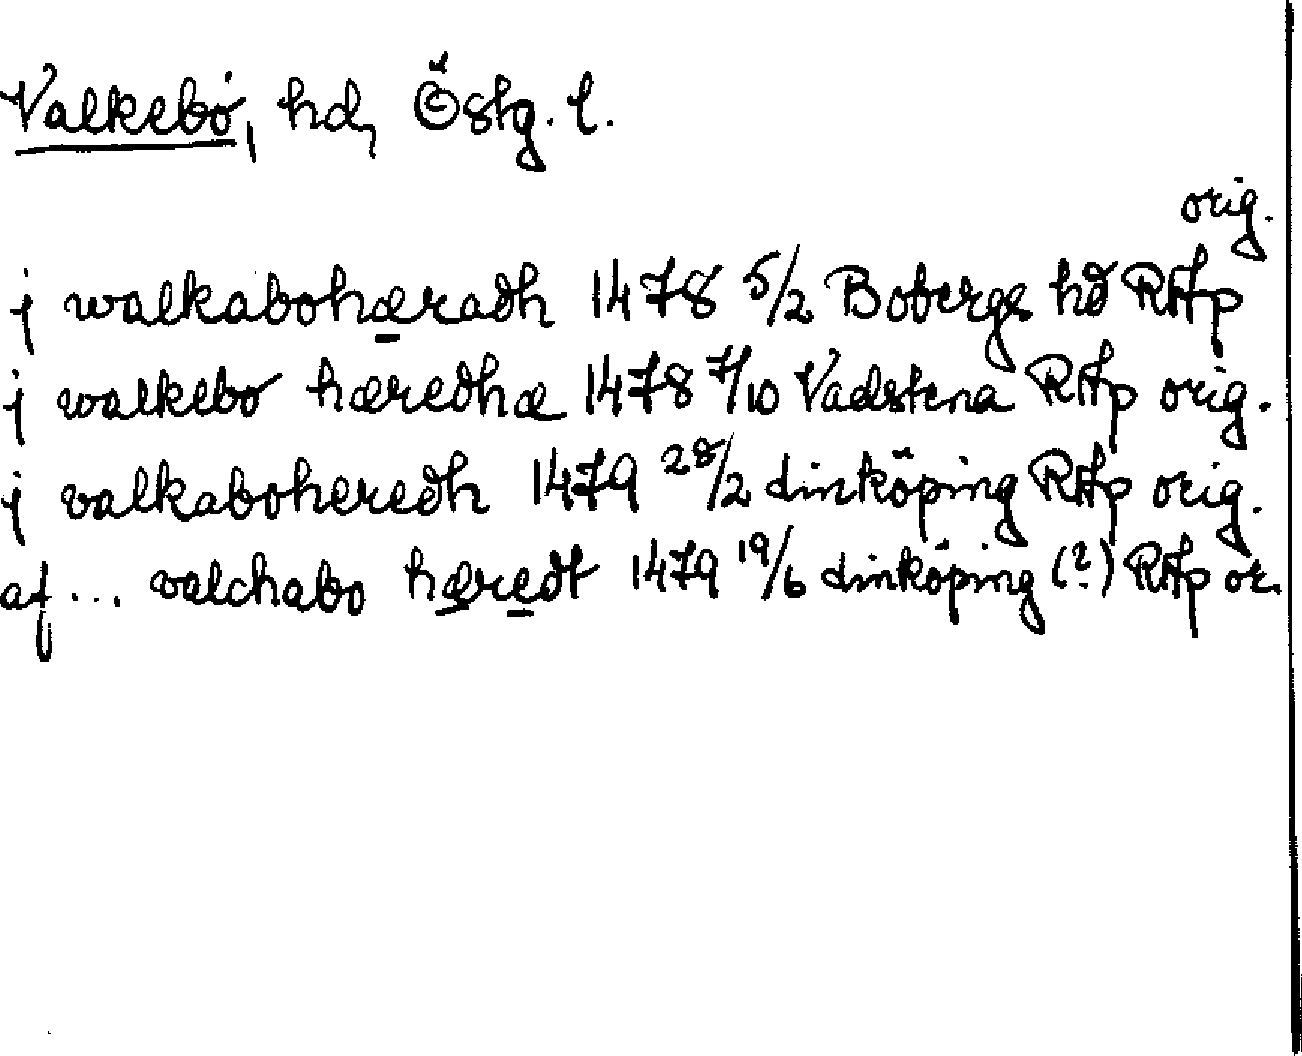 Valkebo, hd, Östg. l.
orig.
j walkabohæradh 1478 5/2 Bobergs hd RAp
j walkebo hæredhæ 1478 7/10 Vadstena RAp orig.
j valkaboheredh 1479 28/2 Linköping RAp orig.
af ... valchabo hæredt 1479 19/6 Linköping (?) RAp or.